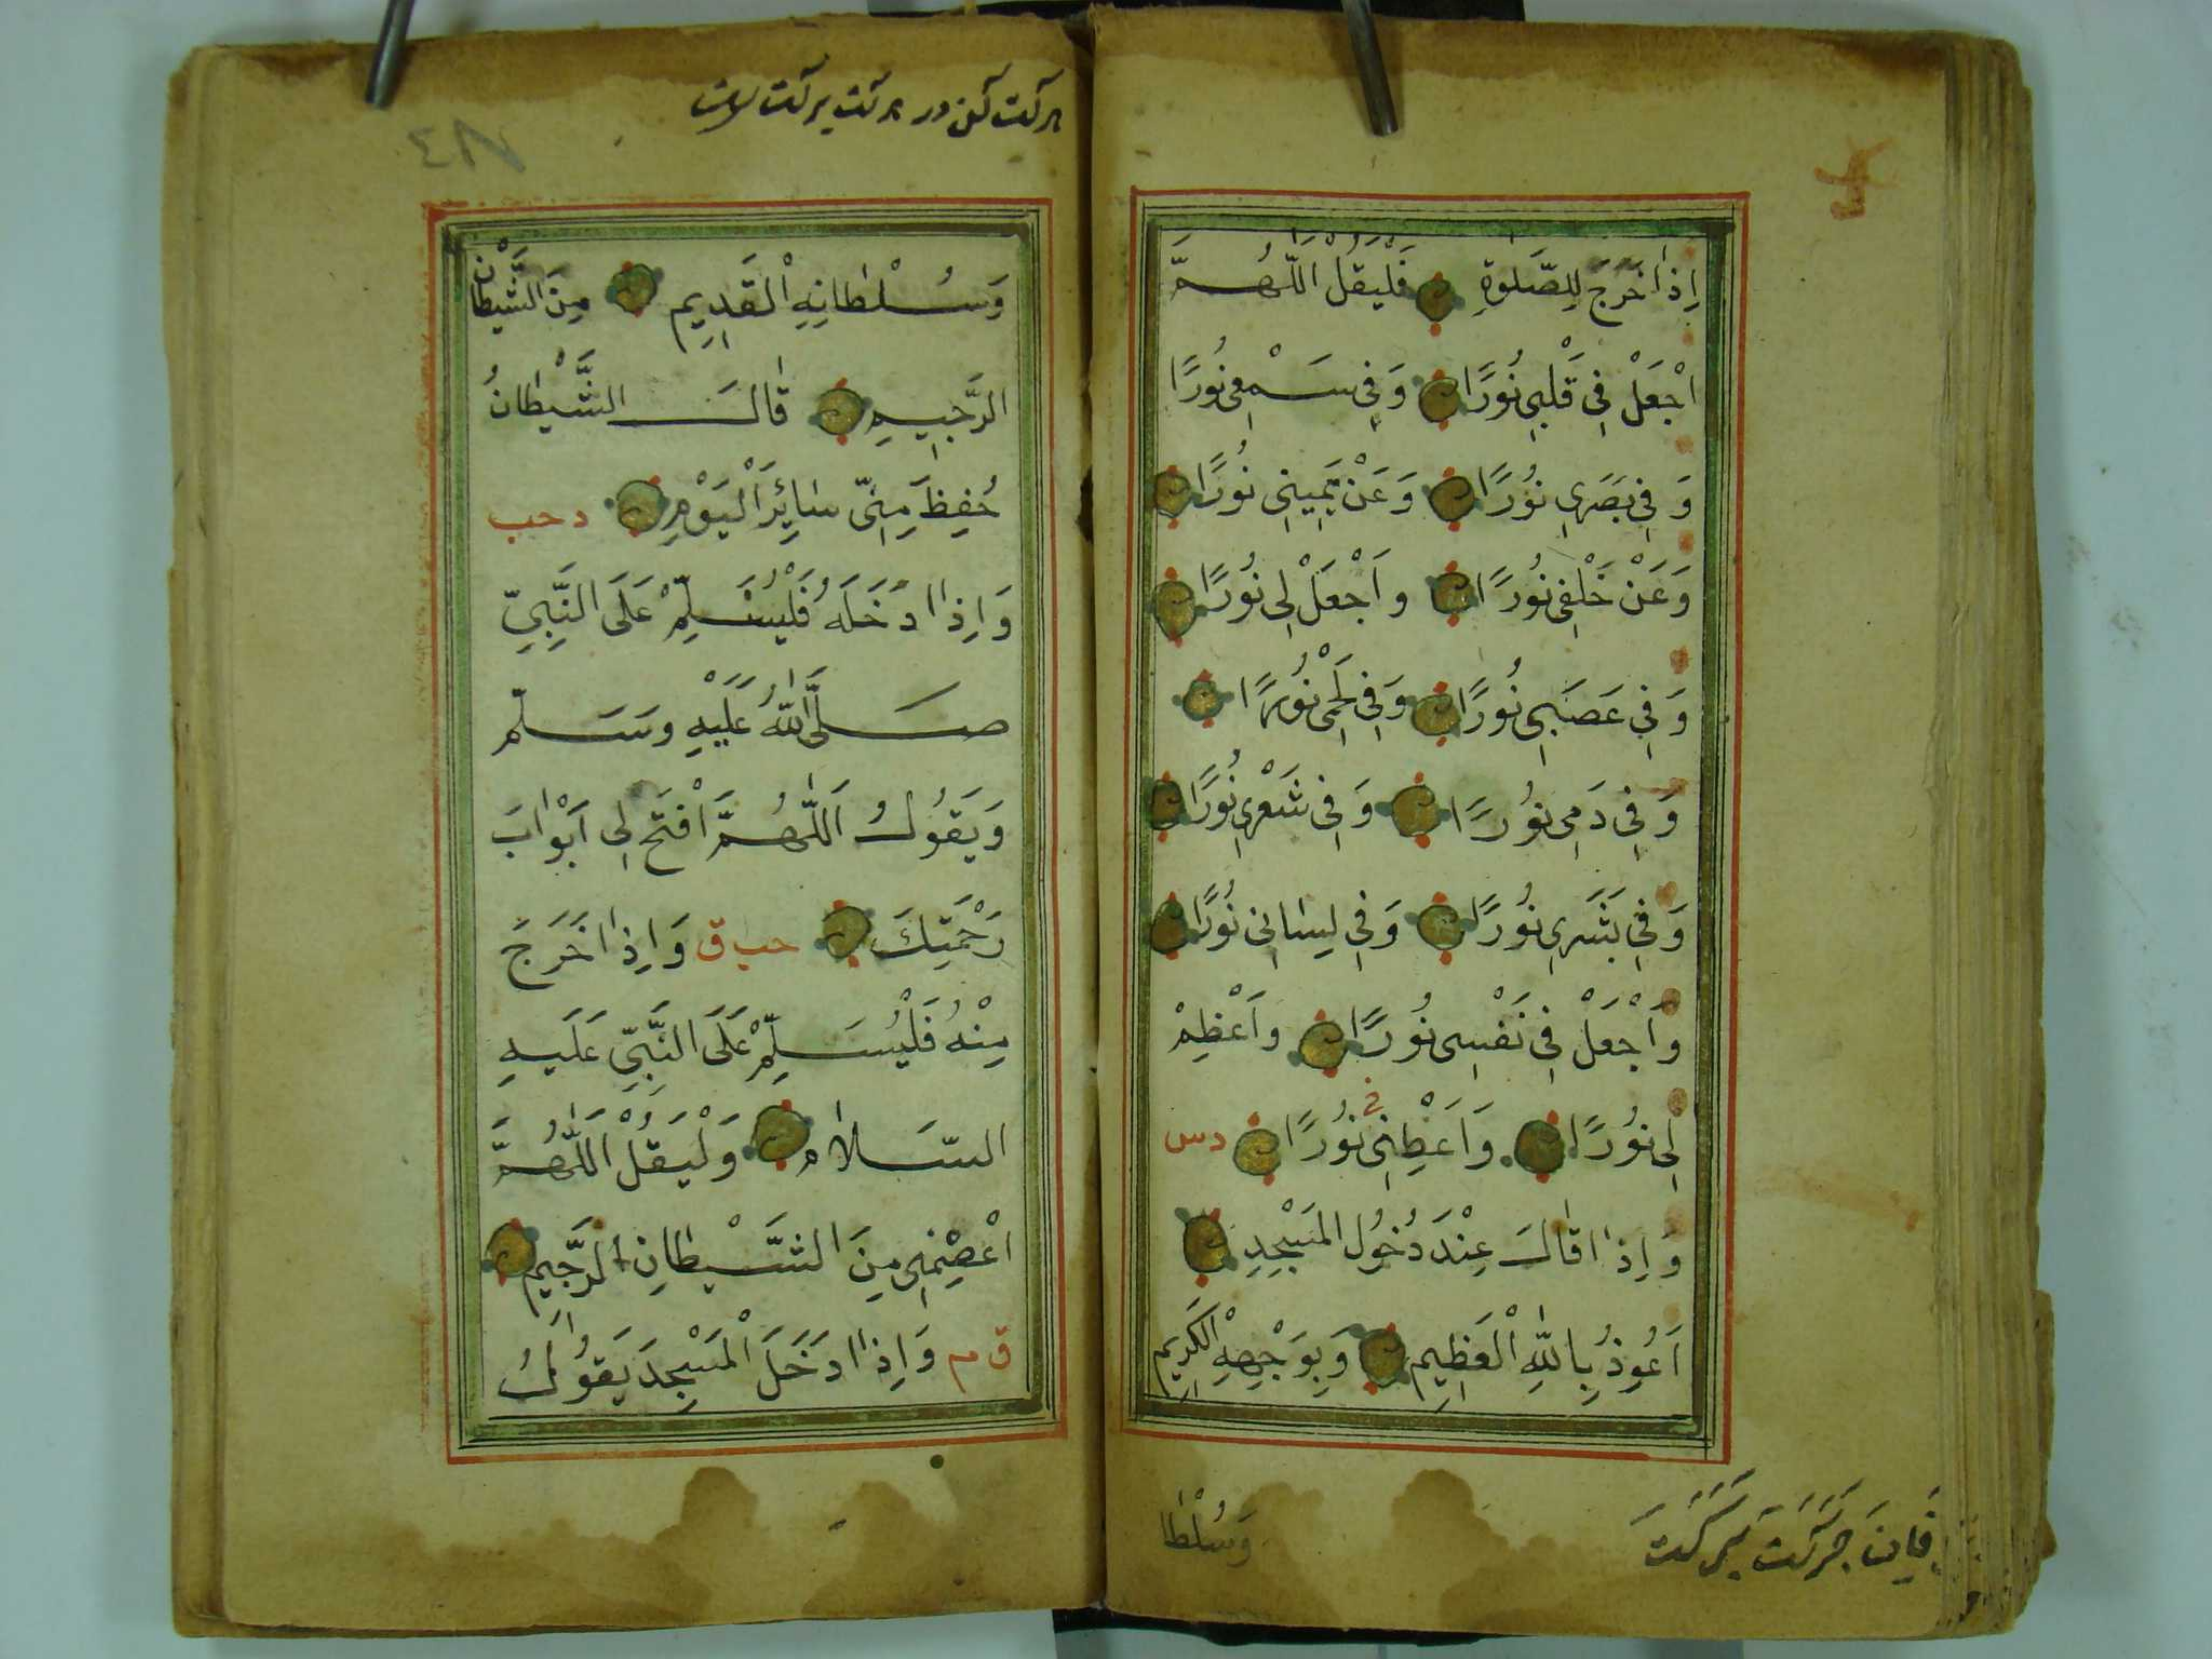 اِذَا خَرَجَ لِلصَّلٰوةِ فَلْيَقُلْ اَللّٰهُمَّ
اجْعَلْ فِي قَلْبِي نُورًا وَفِي سَمْعِي نُورًا
وَفِي بَصَرِي نُورًا وَعَنْ يَمِينِي نُورًا
وَعَنْ خَلْفِي نُورًا واَجْعَلْ لِي نُورًا
وَفِي عَصَبِي نُورًا وَفِي لَحْمِي نُورًا
وَفِي دَمِي نُورًا وَفِي شَعْرِي نُورًا
وَفِي بَشَرِي نُورًا وَفِي لِسَانِي نُورًا
وَاَجْعَلْ فِي نَفْسِي نُورًا واَعْظِمْ
لِي نُورًا وَاَعْطِنِي نُورًا دس
وَاِذَا قَالَ عِنْدَ دُخُولِ المَسْجِدِ
اَعُوذُ بِاللّٰهِ الْعَظِيمِ وَبِوَجْهِهِ الْكَرِيمِ
وَسُلْطَا
٤٨
وَسُلْطَانِهِ الْقَدِيمِ مِنَ الشَّيْطَانِ
الرَّجِيمِ قَالَ الشَّيْطَانُ
حُفِظَ مِنِّي سَائِرَ الْيَوْمِ د حب
وَاِذَا دَخَلَهُ فَلْيُسَلِّمْ عَلَى النَّبِيِّ
صَلَّى اللّٰهُ عَلَيْهِ وسَلَّم
وَيَقُولُ اَللّٰهُمَّ افْتَحْ لِي اَبْوَابَ
رَحْمَتِكَ حب ق وَاِذَا خَرَجَ
مِنْهُ فَلْيُسَلِّمْ عَلَى النَّبِيِّ عَلَيهِ
السَّلَام وَلْيَقُلْ اَللّٰهُمَّ
اعْصِمْنِي مِنَ الشَّيْطَانِ الرَّجِيمِ
ق م وَاِذَا دَخَلَ الْمَسْجِدَ يَقُولُ